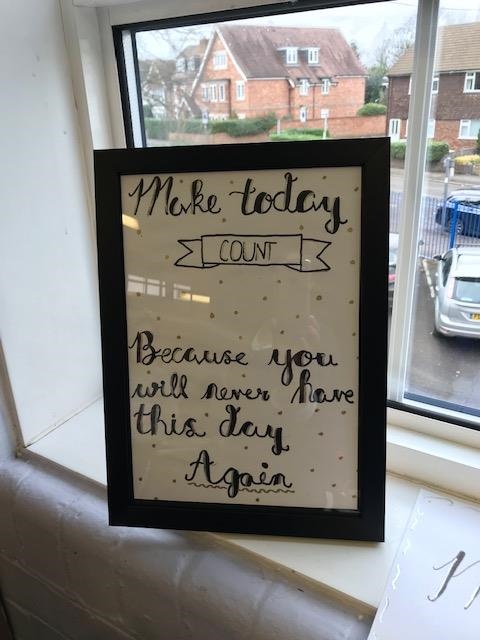 Make today
COUNT
Because you
will never have
this day
Again